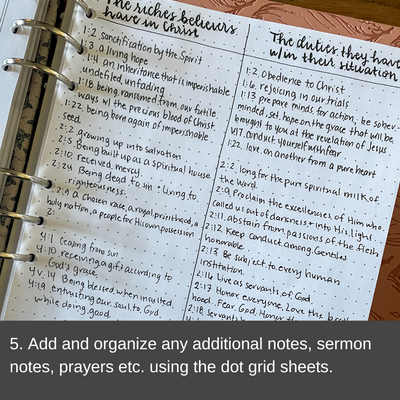 The riches believers
have in Christ
1:2 sanctification by the Spirit
1:3 a living hope
1:4 an inheritance that is imperishable
undefiled, unfading
1:18 being ransomed from our futile
ways w/ the precious blood of Christ
1:22 being born again of imperishable
seed.
2:2 growing up into salvation
2:5 Being built up as a spiritual house
2:10 received mercy
2:24 Being dead to sin + Living to
righteousness.
2:9 a chosen race, a royal priesthood, a
holy nation, a people for His own possession
2:
4:1 ceasing from sin
4:10 receiving a gift according to
God's grace
4v.14 Being blessed when insulted
4:19 entrusting our soul to God
while doing good.
The duties they have
w/in their situation
1:2 obedience to Christ
1:6 rejoicing in our trials
1:13 prepare minds for action, be sober-
minded, set hope on the grace that will be
brought to you at the revelation of Jesus
v17 conduct yourself with fear
1:22 love on another from a pure heart
2:2 long for the pure spiritual milk of
the word.
2:9 proclaim the excellencies of Him who
called u out of darkness + into His light.
2:11 abstain from passions of the flesh
2:12 Keep conduct among Gentiles
honorable
2:13 Be subject to every human
institution.
2:16 Live as servants of God.
2:17 Honor everyone. Love the
hood. Fear God. Honor the
2:18 servants
5. Add and organize any additional notes, sermon
notes, prayers etc. using the dot grid sheets.